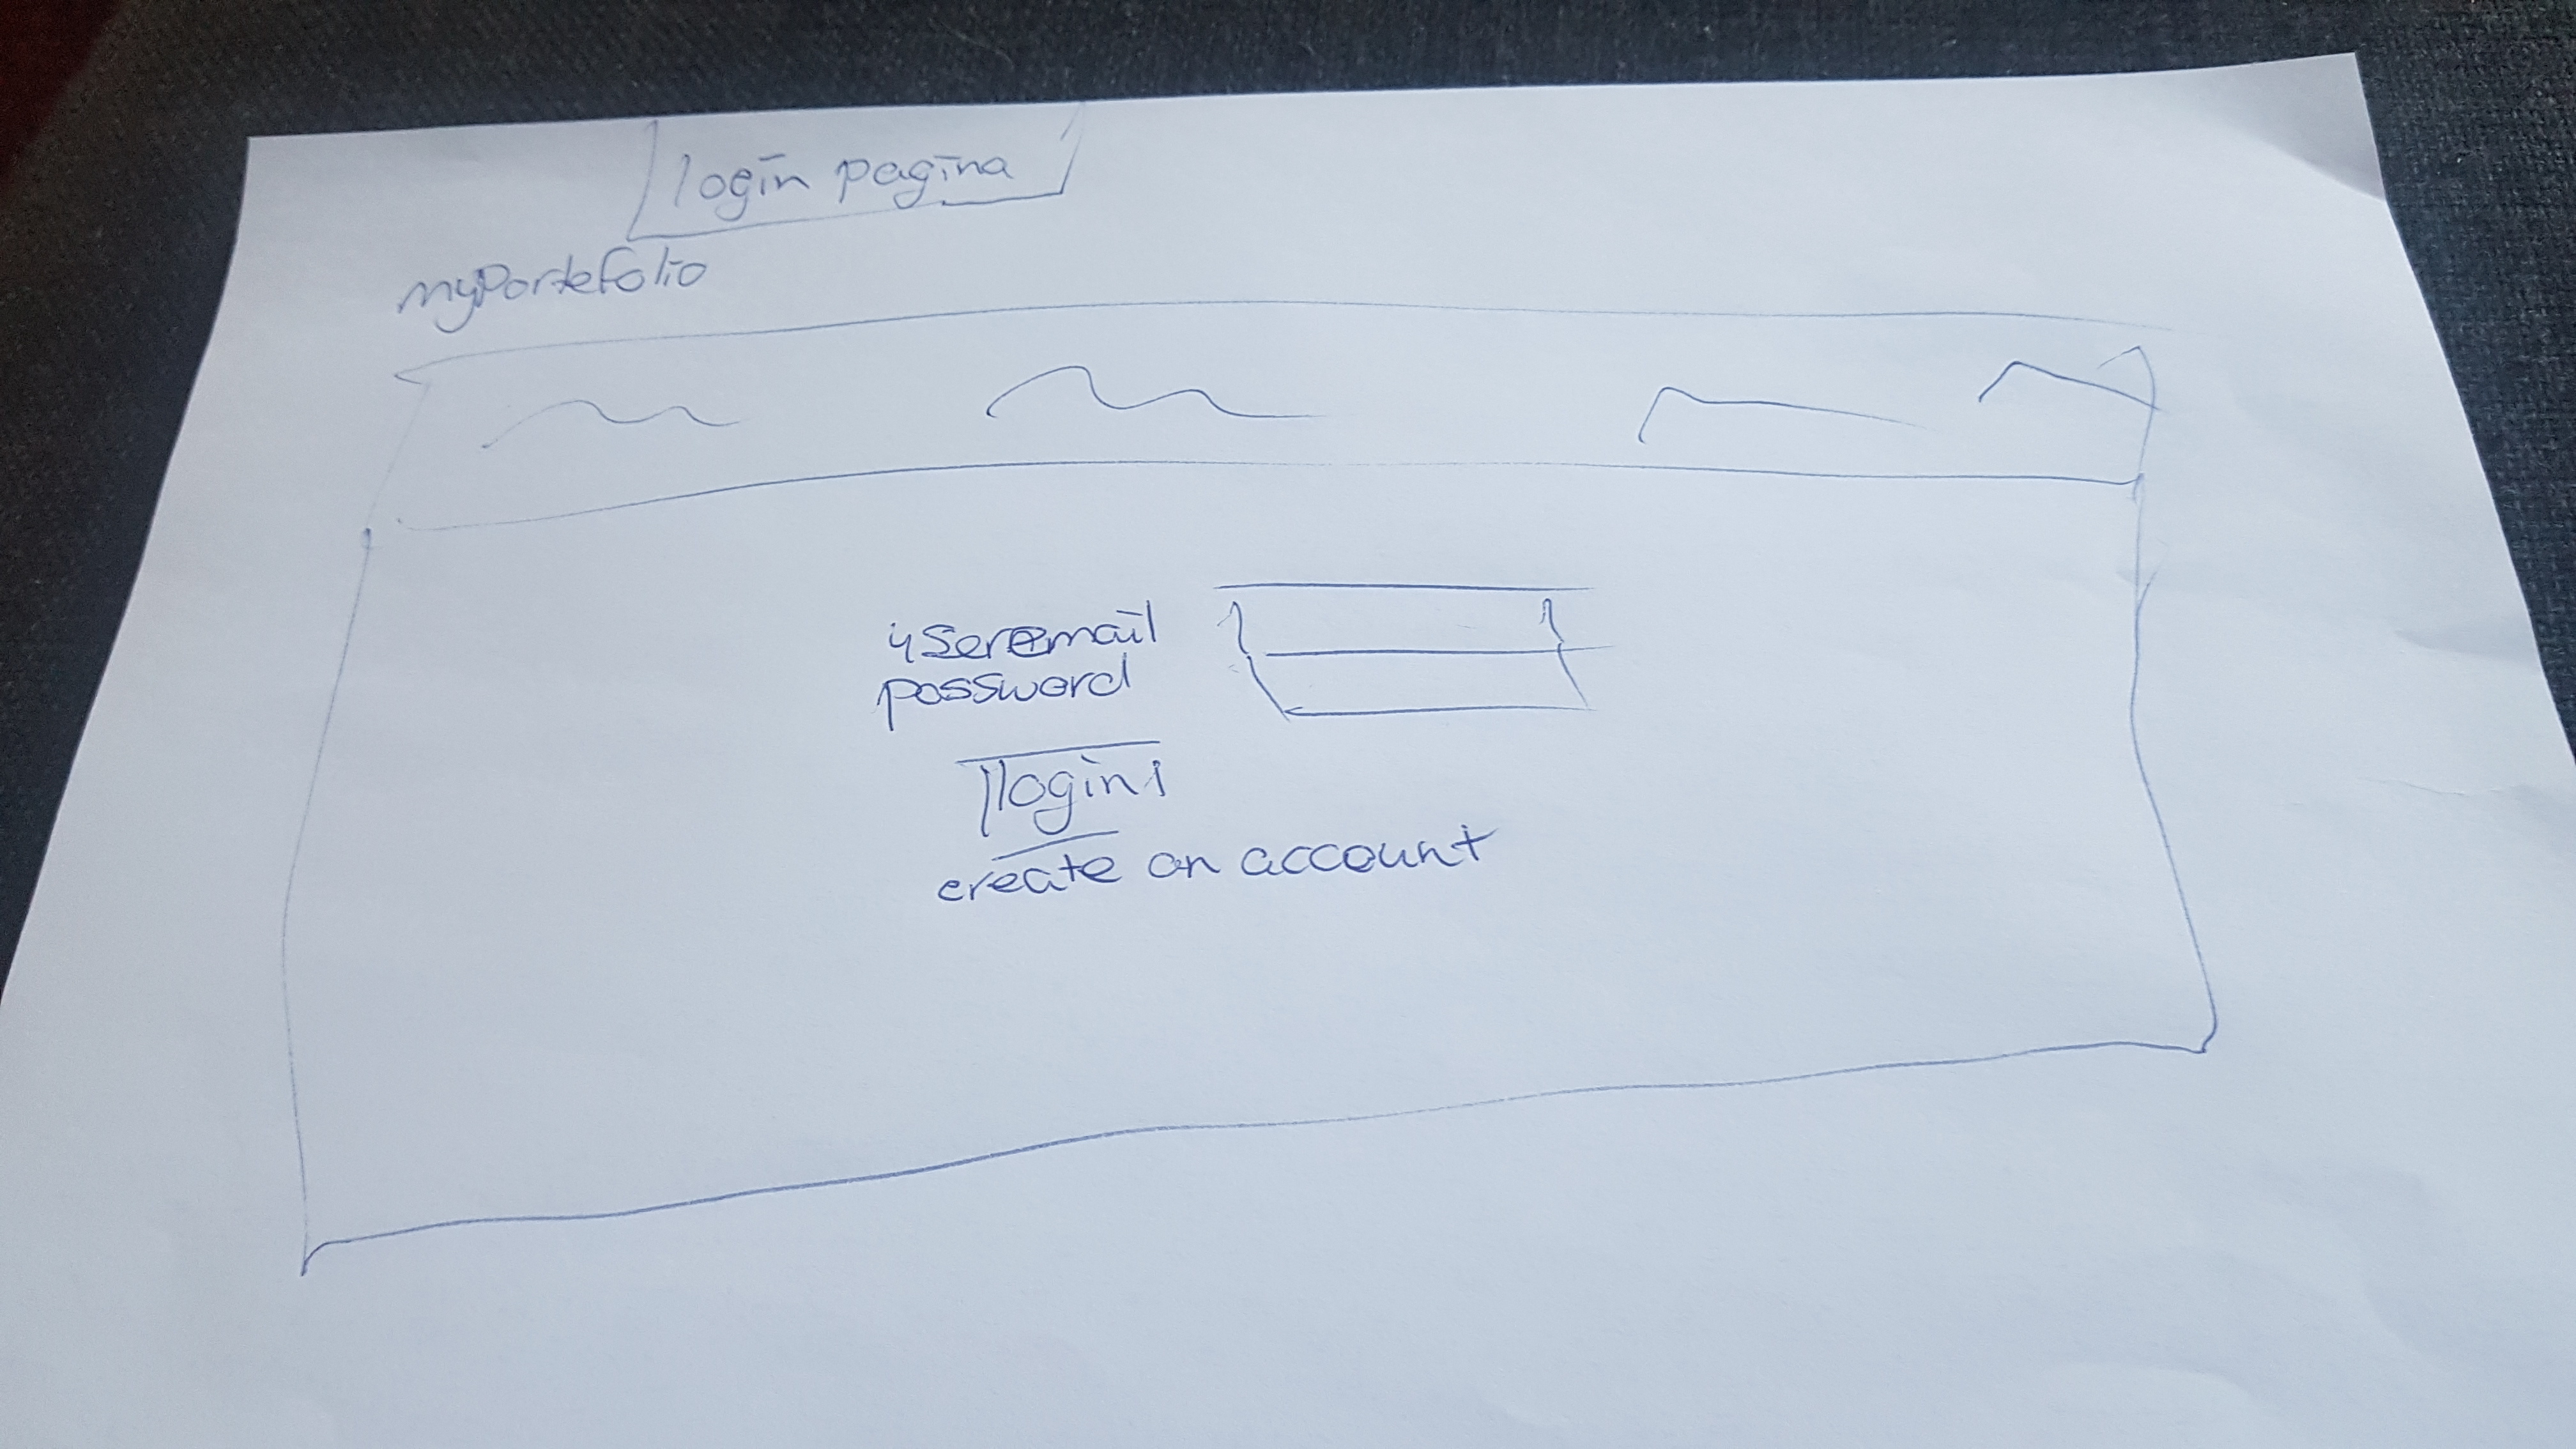 login pagina
myPortefolio
useremail
password
login
create an account